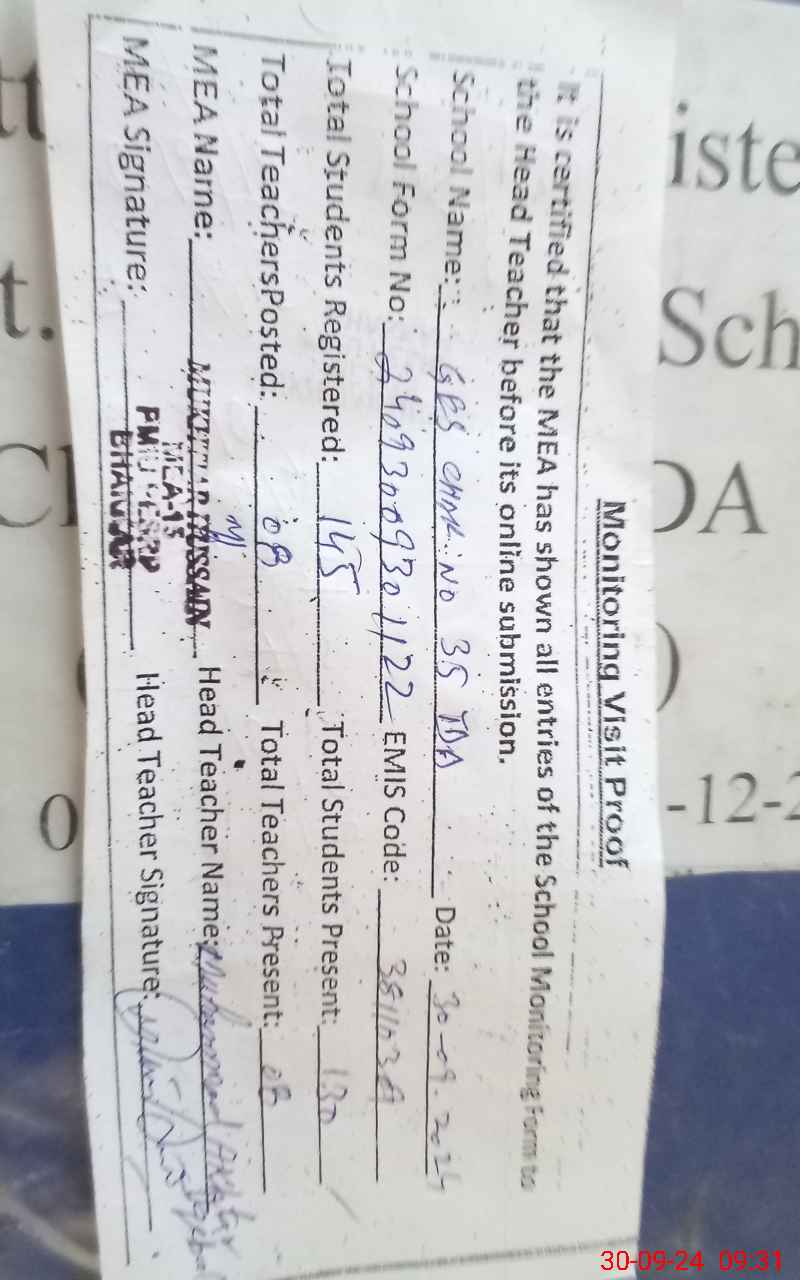 Monitoring Visit Proof
It is certified that the MEA has shown all entries of the School Monitoring Form to
the Head Teacher before its online submission.
School Name: GES CHAK: NO 35 TDA Date: 30-09-2024
School Form No: 24093009301122 EMIS Code:
Total Students Registered: 145 Total Students Present: 130
Total TeachersPosted: 08 Total Teachers Present: 08
MEA Name: MUKHTIAR HUSSAIN Head Teacher Name: Muhammad
MEA-15
MEA Signature: Head Teacher Signature:
PMIU PESRP
BHAKKAR
iste
Sch
DA
-12-2
30-09-24 09:31